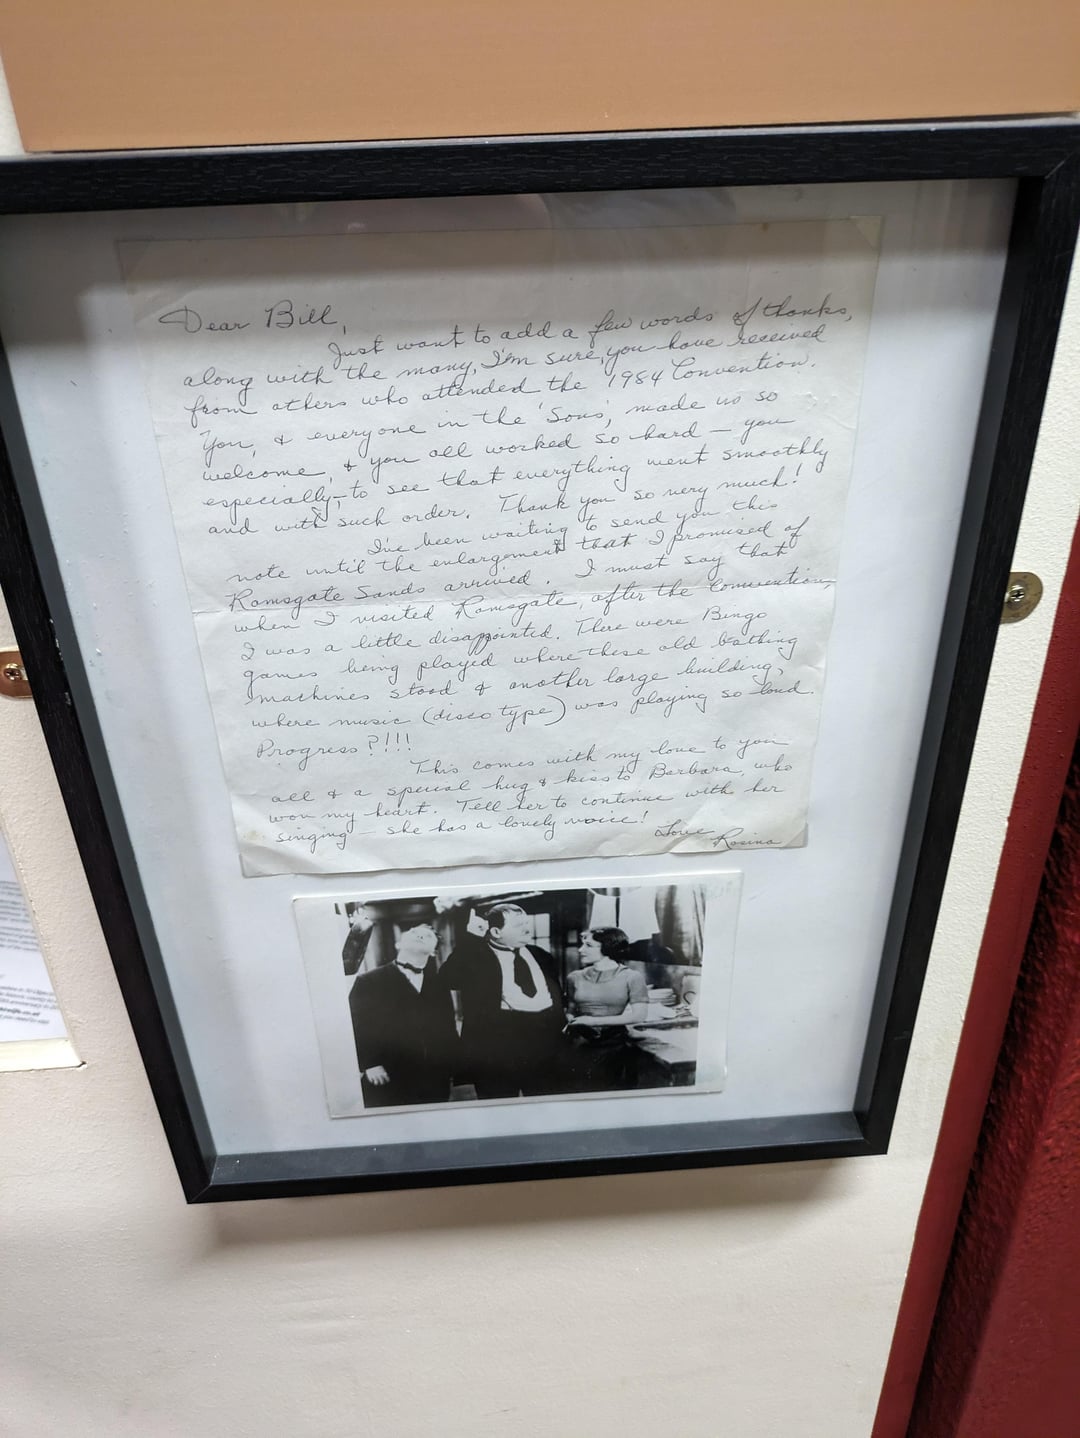 Dear Bill,
Just want to add a few words of thanks,
along with the many, I'm sure, you have received
from others who attended the 1984 Convention.
You, & everyone in the 'Sons', made us so
welcome, & you all worked so hard – you
especially, – to see that everything went smoothly
and with such order. Thank you so very much!
I've been waiting to send you this
note until the enlargement that I promised of
Ramsgate Sands arrived. I must say that
when I visited Ramsgate, after the Convention,
I was a little disappointed. There were Bingo
games being played where these old bathing
machines stood & another large building,
where music (disco type) was playing so loud.
Progress?!!!
This comes with my love to you
all & a special hug & kiss to Barbara, who
won my heart. Tell her to continue with her
singing – she has a lovely voice!
Love
Rosina